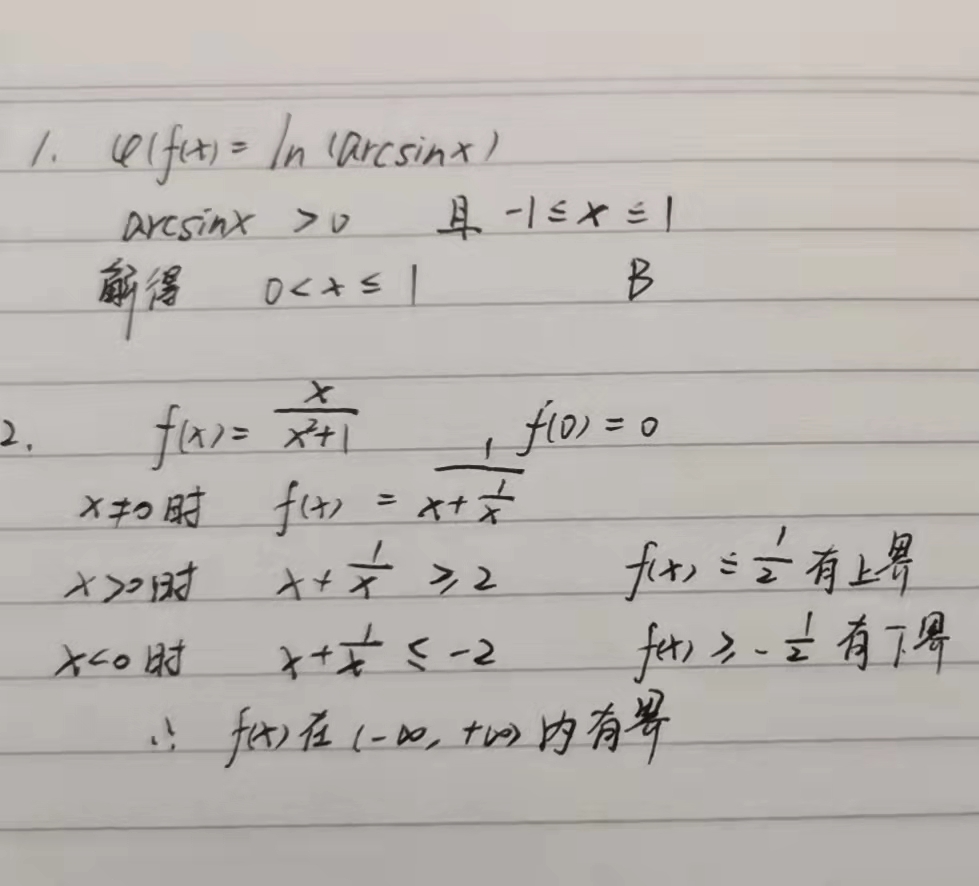 1. φ(f(x) = ln (arcsinx)
arcsinx > 0 且 -1 ≤ x ≤ 1
解得 0 < x ≤ 1 B
2. f(x) = x/(x²+1) , f(0) = 0
x≠0时 f(x) = 1/(x+1/x)
x>0时 x+1/x ≥ 2 f(x) ≤ 1/2 有上界
x<0时 x+1/x ≤ -2 f(x) ≥ -1/2 有下界
∴ f(x)在(-∞, +∞)内有界